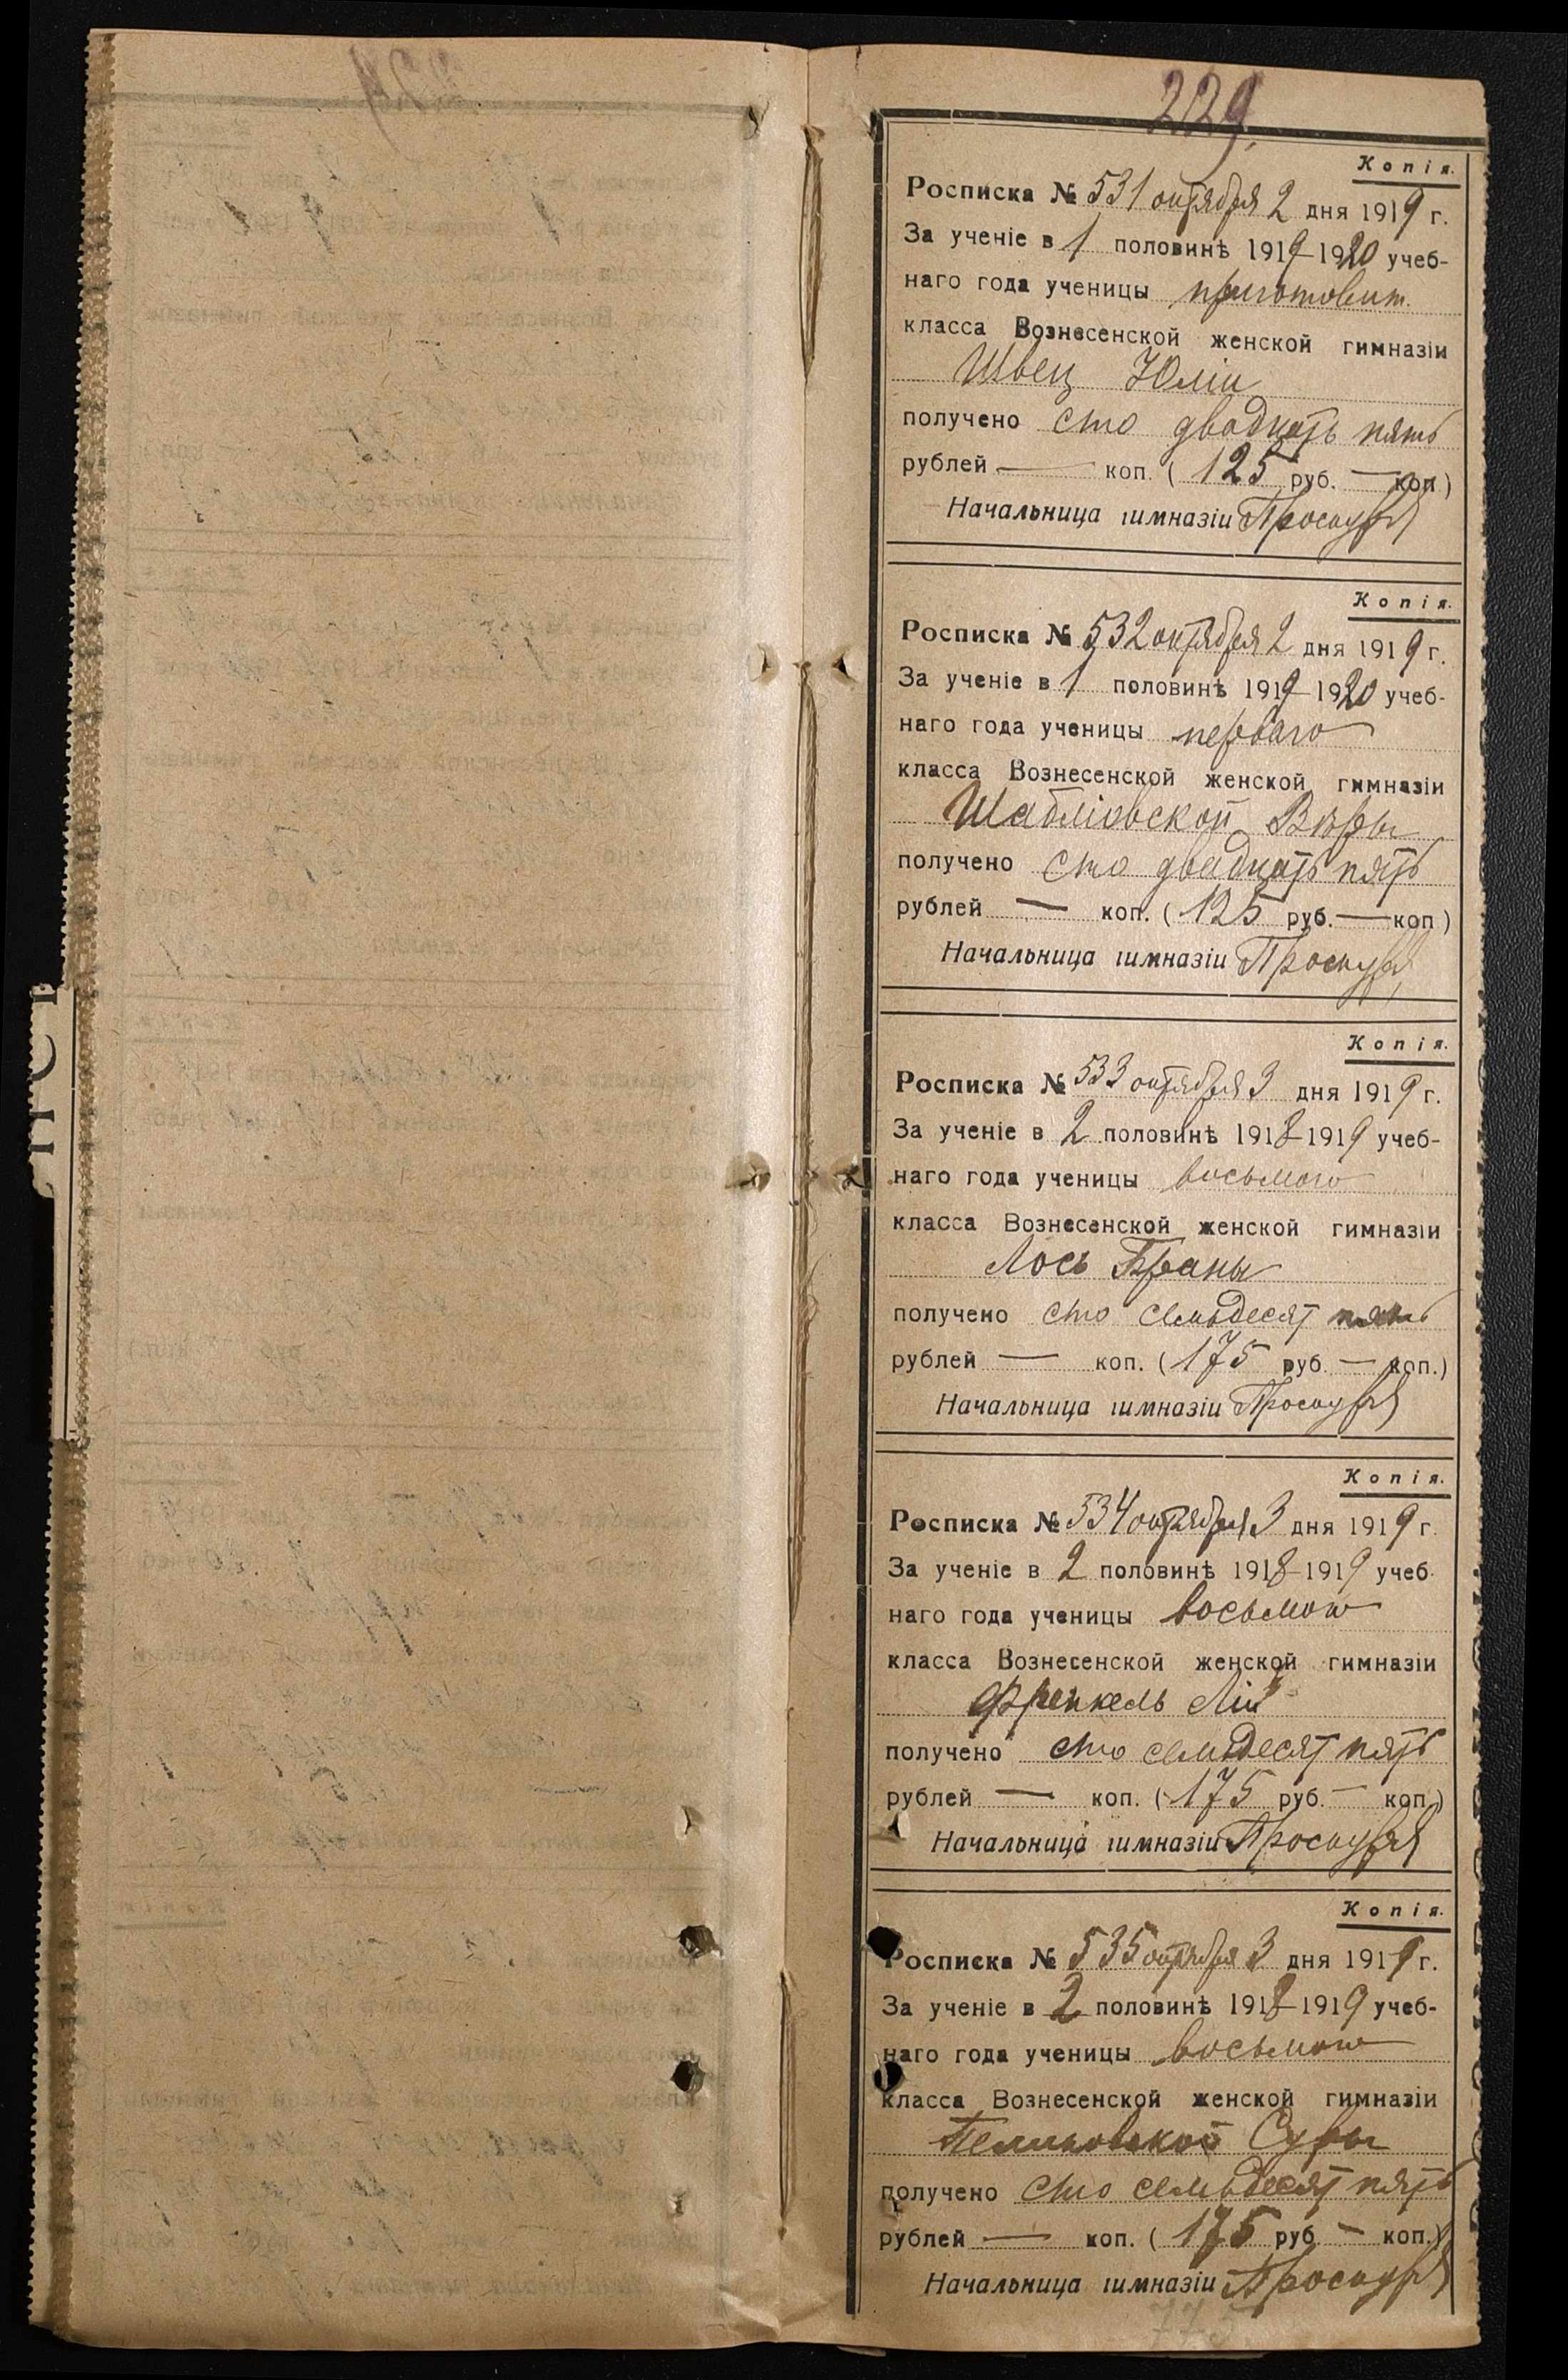 229.
Копія.
Росписка № 531 октября 2 дня 1919 г.
За ученіе в 1 половинѣ 1919-1920 учеб-
наго года ученицы приготовит.
класса Вознесенской женской гимназіи
Швец Юліи
получено сто двадцать пять
рублей — коп. (125 руб. — коп)
Начальница гимназіи
Копія.
Росписка № 532 октября 2 дня 1919 г.
За ученіе в 1 половинѣ 1919-1920 учеб-
наго года ученицы перваго
класса Вознесенской женской гимназіи
Шабліовской Вѣры
получено сто двадцать пять
рублей — коп. (125 руб. — коп)
Начальница гимназіи
Копія.
Росписка № 533 октября 3 дня 1919 г.
За ученіе в 2 половинѣ 1918-1919 учеб-
наго года ученицы восьмого
класса Вознесенской женской гимназіи
Лось Браны
получено сто семьдесят пять
рублей — коп. (175 руб. — коп.)
Начальница гимназіи
Копія.
Росписка № 534 октября 3 дня 1919 г.
За ученіе в 2 половинѣ 1918-1919 учеб-
наго года ученицы восьмого
класса Вознесенской женской гимназіи
Френкель Ліи
получено сто семьдесят пять
рублей — коп. (175 руб. — коп.)
Начальница гимназіи
Копія.
Росписка № 535 октября 3 дня 1919 г.
За ученіе в 2 половинѣ 1918-1919 учеб-
наго года ученицы восьмого
класса Вознесенской женской гимназіи
Суры
получено сто семьдесят пять
рублей — коп. (175 руб. — коп.)
Начальница гимназіи
775